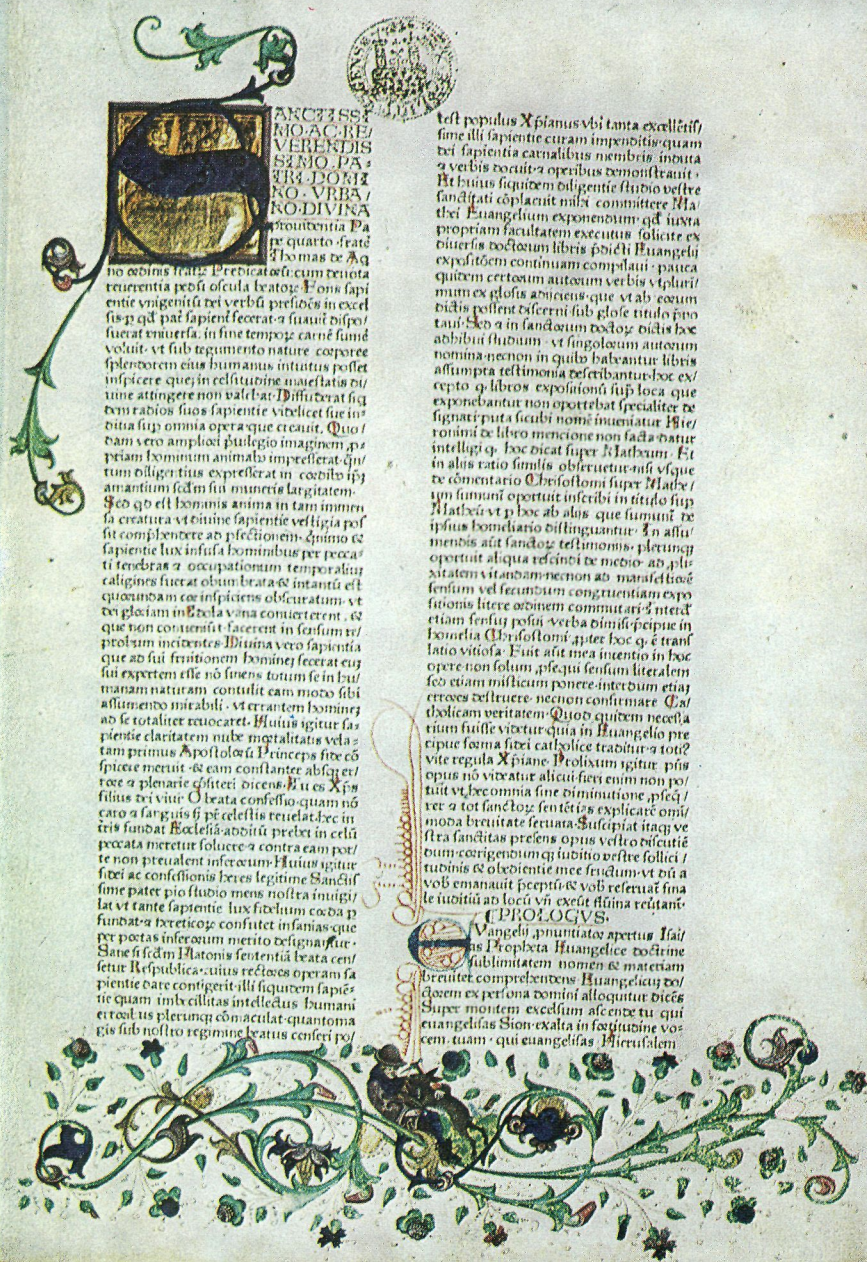 SANCTISSI
MO·AC·RE/
VERENDIS
SIMO·PA-
TRI·DOMI
NO·VRBA/
NO·DIVINA
prouidentia Pa
pe quarto·fratẽ
Thomas de Aq
no ordinis
reuerentia pedũ oscula beatoꝝ·Fons sapi
entie vnigenitus dei verbũ presidẽs in excel
sis·p qđ pař sapient̃ fecerat ⁊ suauit̃ dispo/
suerat vniuersa, in fine tempoꝝ carnẽ sumẽ
voluit· vt sub tegumento nature corporee
splendorem eius humanus intuitus posset
inspicere quẽ in celsitudine maiestatis di/
uine attingere non valebat·Diffuderat siq̃
dem radios suos sapientie videlicet sue in-
ditia sup omnia opera que creauit, Quo/
dam vero ampliori p̃uilegio imaginem ,p-
priam hominum animabꝰ impresserat·q̃n/
tum diligentius expresserat in cordibꝰ ip̃ꝝ
amantium scđm sui muneris largitatem·
Sed qđ est hominis anima in tam immen
sa creatura vt diuine sapientie vestigia pos
sit comp̃hendere ad ,pfectionem·q̃nimo &
sapientie lux infusa hominibus per pecca-
ti tenebras & occupationum temporaliũ
caligines fuerat obumbrata·& intantũ est
quorundam cor insipiens obscuratum·vt
dei gloriam in Edola vana conuerterent ·&
que non conueniũt facerent in sensum re/
probum incidentes·Diuina vero sapientia
que ad sui fruitionem hominẽ fecerat euꝫ
sui expertem esse nõ sinens totum se in hu/
manam naturam contulit eam modo sibi
assumendo mirabili· vt errantem hominẽ
ad se totaliter reuocaret·Huius igitur sa-
pientie claritatem nube mortalitatis vela-
tam primus Apostoloꝝ Princeps fide cõ
spicere meruit·& eam constanter absqꝫ er/
rore ⁊ plenarie cõfiteri dicens·Tu es Xp̃s
filius dei viui· O beata confessio·quam nõ
caro ⁊ sanguis ſꝫ p̃r celestis reuelat·hec in
tris fundat Ecclesiã·aditũ prebet in celũ
peccata meretur soluere·⁊ contra eam por/
te non preualent inferoꝝum·Huius igitur
fidei ac confessionis heres legitime Sanctis
sime pater pio studio mens nostra inuigi/
lat vt tante sapientie lux fidelium corda p
fundat·⁊ hereticoꝝ confutet insanias·que
per portas inferorum merito designantur·
Sane si scđm Platonis sententiã beata cen/
setur Respublica·cuius rectores operam sa
pientie dare contigerit·illi siquidem sapiẽ-
tie quam imbecillitas intellectus humani
erroribus plerunqꝫ cõmaculat·quantoma
gis sub nostro regimine beatus censeri po/
test populus Xp̃ianus vbi tanta excellẽtis/
sime illi sapientie curam impenditis·quam
dei sapientia carnalibus membris induta
⁊ verbis docuit·⁊ operibus demonstrauit·
Et huius siquidem diligentie studio vestre
sanctitati cõplacuit mihi committere Ma/
thei Euangelium exponendum·qđ iuxta
propriam facultatem executus solicite ex
diuersis doctorum libris p̃dicti Euangelij
expositõem continuam compilaui·pauca
quidem certorum autorum verbis vtpluri/
mum ex glosis adijciens·que vt ab eorum
dictis possent discerni sub glose titulo p̃no
taui·Sed & in sanctorum doctoꝝ dictis hoc
adhibui studium· vt singolorum autorum
nomina·necnon in quibꝰ habeantur libris
assumpta testimonia describantur·hoc ex/
cepto q libros expositionũ sup̃ loca que
exponebantur non oportebat specialiter de
signari·puta sicubi nomẽ inueniatur Hie/
ronimi de libro mencione non facta·datur
intelligi q hoc dicat super Matheum· Et
in alijs ratio similis obseruetur·nisi vsque
de cõmentario Chrisostomi super Mathe/
um sumunt̃ oportuit inscribi in titulo sup
Matheũ vt p hoc ab alijs que sumunt̃ de
ipsius homeliario distinguantur· In assu/
mendis aũt sanctoꝝ testimonijs·plerunqꝫ
oportuit aliqua rescindi de medio·ad ,pli-
xitatem vitandam·necnon ad manifestiorẽ
sensum vel secundum congruentiam expo
sitionis litere ordinem commutari·Interđ
etiam sensuꝫ posui·verba dimisi·p̃cipue in
homelia Chrisostomi ,ppter hoc q ẽ trans
latio vitiosa·Fuit aũt mea intentio in hoc
opere non solum ,psequi sensum literalem
sed etiam misticum ponere·interdum etiaꝫ
errores destruere·necnon confirmare Ca/
tholicam veritatem·Quod quidem necessa
rium fuisse videtur·quia in Euangelio pre
cipue forma fidei catholice traditur·⁊ toti⁹
vite regula Xp̃iane·Prolixum igitur p̃ñs
opus nõ videatur alicui·fieri enim non po/
tuit vt hec omnia sine diminutione ,pseq/
rer ⁊ tot sanctoꝝ sentẽtias explicarẽ omĩ/
moda breuitate seruata·Suscipiat itaqꝫ ve
stra sanctitas presens opus vestro discutiẽ
dum·corrigendum qꝫ iuditio vestre sollici/
tudinis & obedientie mee fructum·vt dũ a
vob emanauit p̃ceptũ·& vob reseruat̃ fina
le iuditiũ ad locũ vñ exeũt flũina reũtant̃·
PROLOGVS·
EVangelij ,pnuntiator apertus Isai/
as Propheta Euangelice doctrine
sublimitatem nomen & materiam
breuiter comprehendens·Euangelicũ do/
ctorem ex persona domini alloquitur dicẽs
Super montem excelsum ascende tu qui
euangelisas Sion·exalta in fortitudine vo-
cem tuam·qui euangelisas Hierusalem